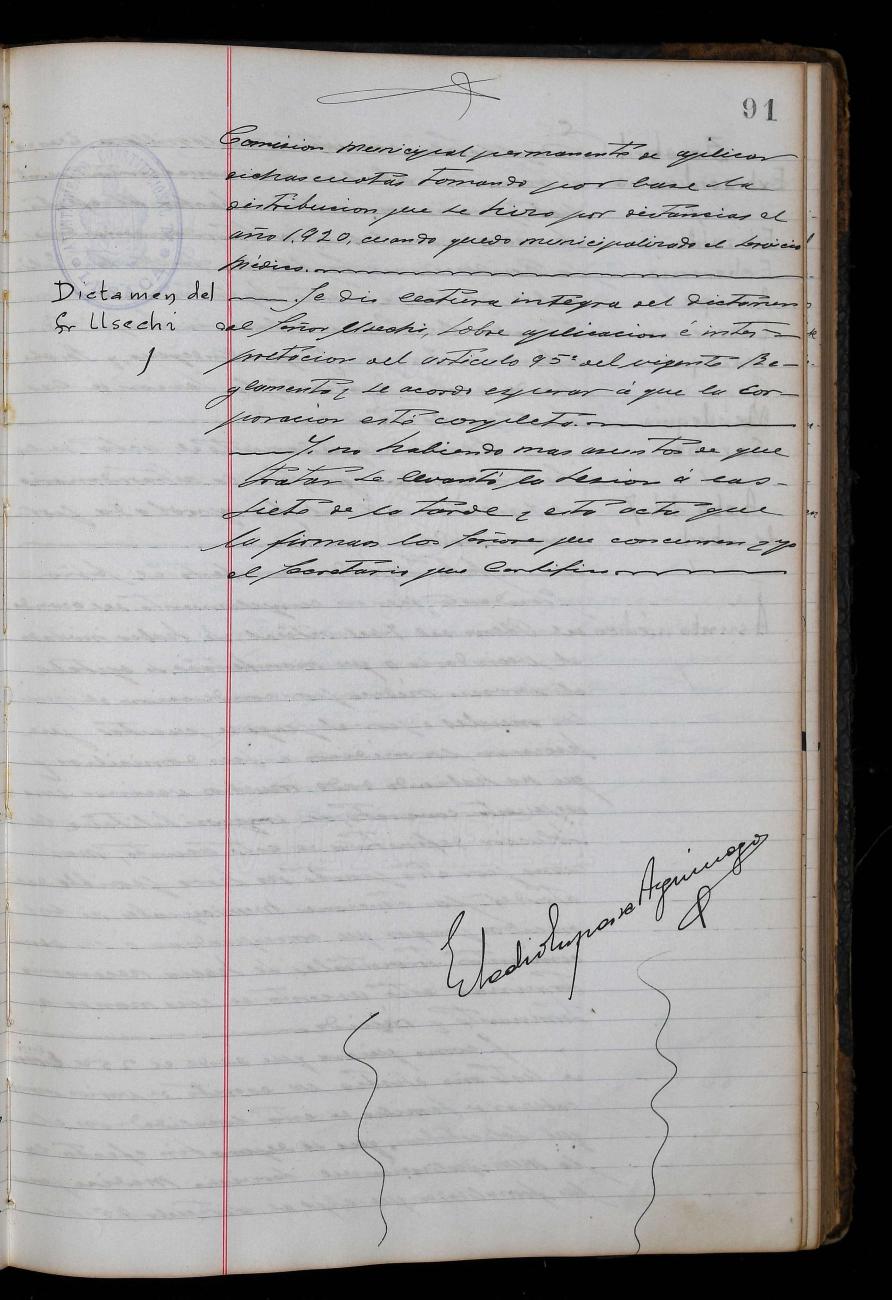 91
Comision municipal permanente de aplicar
dichas cuotas tomando por base la
distribucion que se hizo por distancias el
año 1.920, cuando quedo municipalizado el servicio
Médico.
Dictamen del
Sr Usechi
Se dio lectura integra del dictamen
del Señor Usechi, sobre aplicacion é inter-
pretacion del articulo 95º del vigente Re-
glamento y se acordo esperar á que la Cor-
poracion esté completa.
Y no habiendo mas asuntos de que
tratar se levantó la sesion á las
siete de la tarde y esta acta que
la firman los Señore que concurren y yo
el Secretario que Certifico.
Eladio Aguinaga